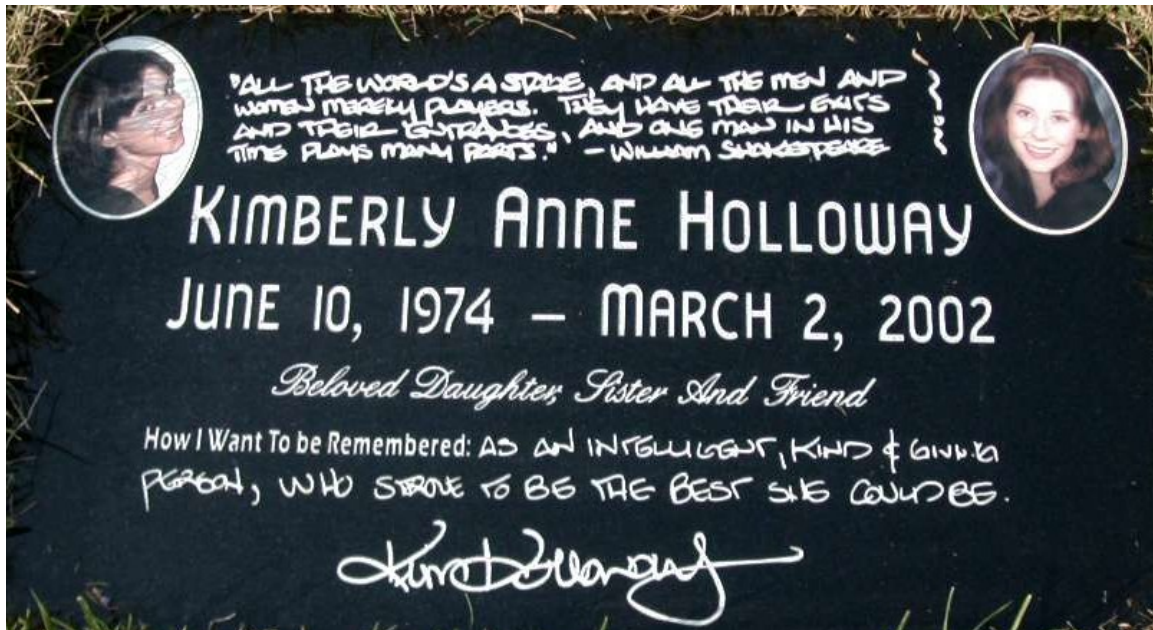 "ALL THE WORLD'S A STAGE, AND ALL THE MEN AND
WOMEN MERELY PLAYERS. THEY HAVE THEIR EXITS
AND THEIR ENTRANCES, AND ONE MAN IN HIS
TIME PLAYS MANY PARTS." – WILLIAM SHAKESPEARE
KIMBERLY ANNE HOLLOWAY
JUNE 10, 1974 – MARCH 2, 2002
Beloved Daughter, Sister And Friend
How I Want To be Remembered: AS AN INTELLIGENT, KIND & GIVING
PERSON, WHO STROVE TO BE THE BEST SHE COULD BE.
Kim Holloway